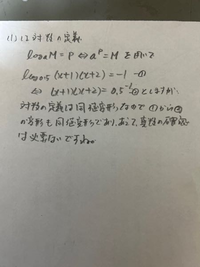 (1)は対数の定義
log a M = P ⇔ a^P = M を用いて
log 0.5 (x+1)(x+2) = -1 -①
⇔ (x+1)(x+2) = 0.5^-1 ②としますが、
対数の定義は同値変形なので①から②
の変形も同値変形であり、よって、真数の確認
は必要ないですよね